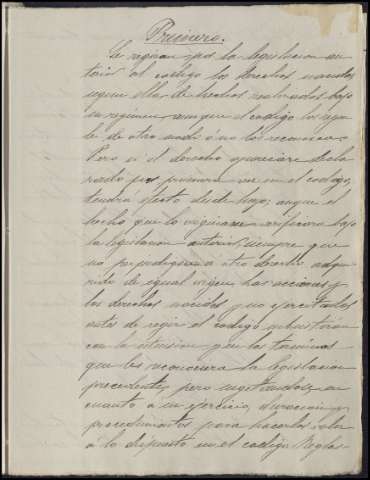 Primero.
Se regiran por la legislacion an-
terior al codigo los derechos nacidos
segun ella, de hechos realizados bajo
su regimen, aunque el codigo los regu-
le de otro modo ó no los reconozca.
Pero si el derecho apareciere decla-
rado por primera vez en el codigo,
tendra efecto desde luego; aunque el
hecho que lo origine se verificara bajo
la legislacion anterior, siempre que
no perjudique á otro derecho adqui-
rido de igual origen. Las acciones y
los derechos nacidos y no ejercitados
antes de regir el codigo subsistiran
con la estension y en los terminos
que les reconociera la legislacion
precedente, pero sugetandose, en
cuanto á su ejercicio, duracion y
procedimientos para hacerlos valer
á lo dispuesto en el codigo. Reglas